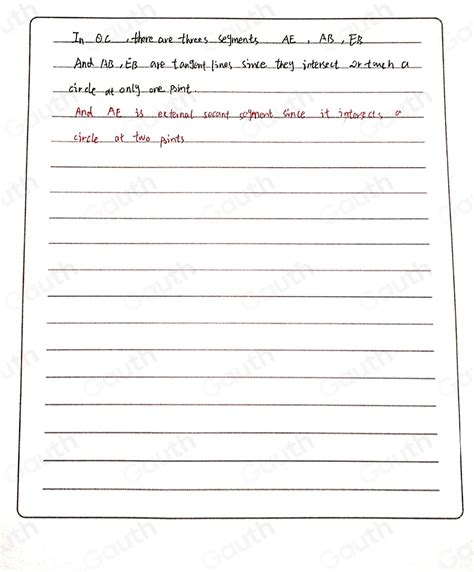 In ⊙C, there are threes segments AE, AB, EB
And AB, EB are tangent lines since they intersect or touch a
circle at only one point.
And AE is external secant segment since it intersects a
circle at two points